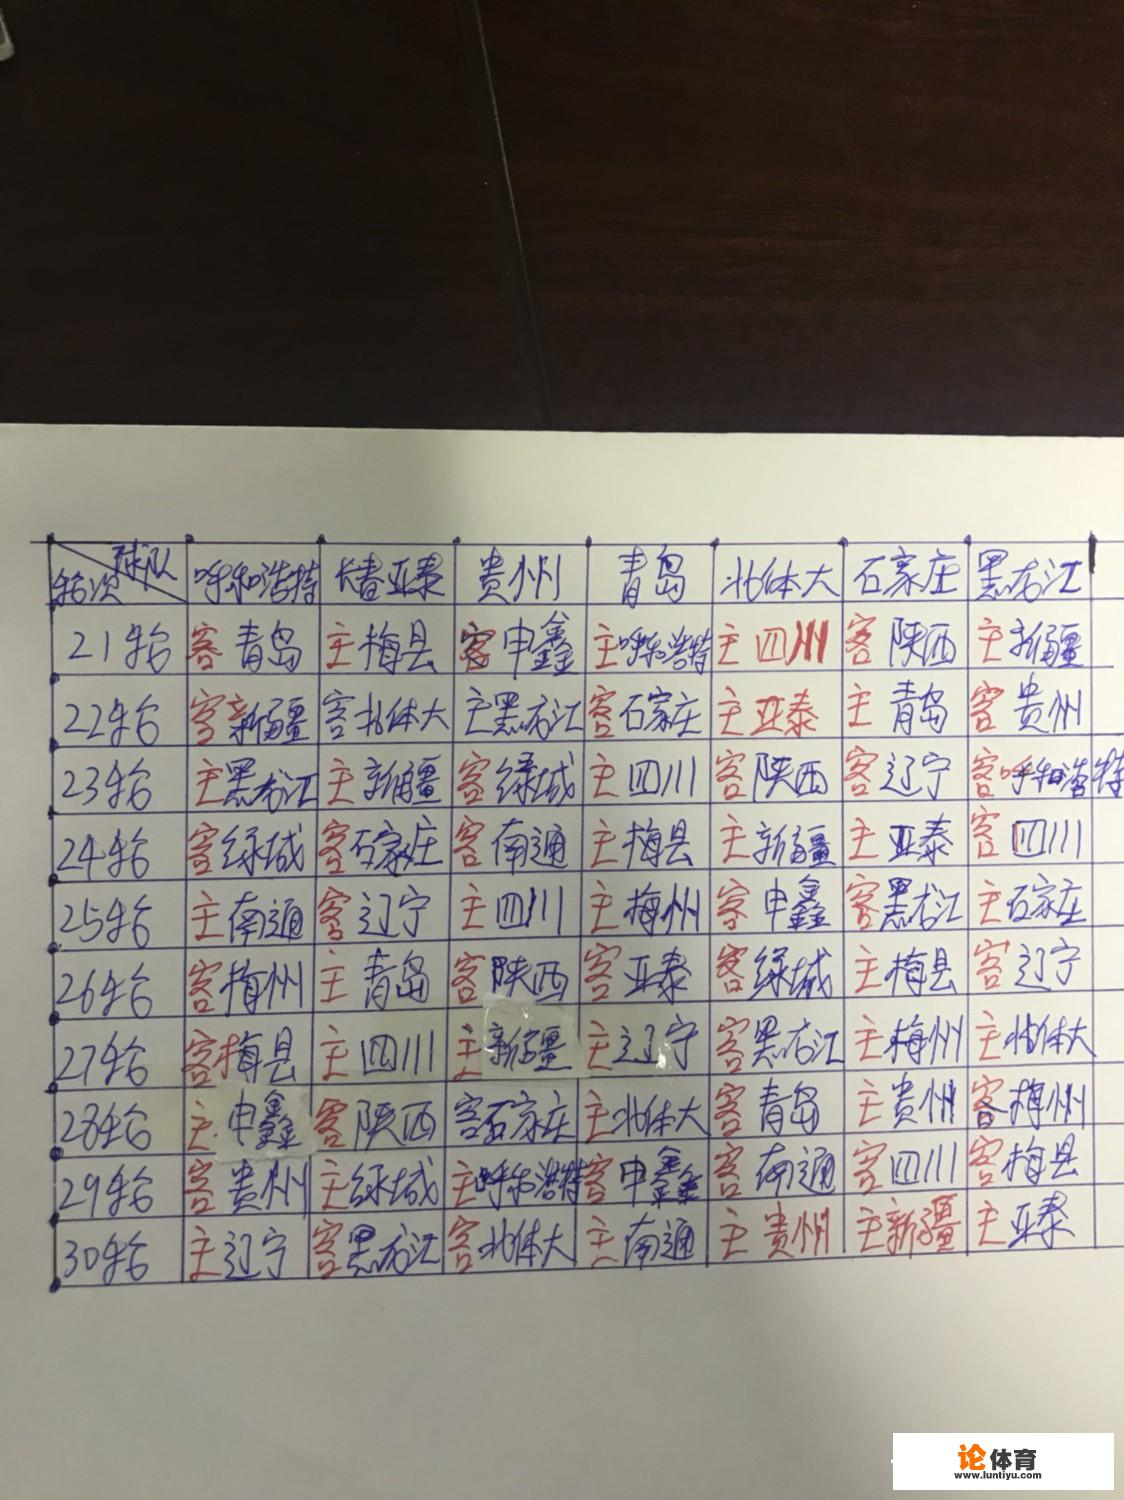 球队 轮次 呼和浩特 长春亚泰 贵州 青岛 北体大 石家庄 黑龙江
21轮 客青岛 主梅县 客申鑫 主呼和浩特 主四川 客陕西 主新疆
22轮 客新疆 客北体大 主黑龙江 客石家庄 主亚泰 主青岛 客贵州
23轮 主黑龙江 主新疆 客绿城 主四川 客陕西 客辽宁 客呼和浩特
24轮 客绿城 客石家庄 客南通 主梅县 主新疆 主亚泰 客四川
25轮 主南通 客辽宁 主四川 主梅州 客申鑫 客黑龙江 主石家庄
26轮 客梅州 主青岛 客陕西 客亚泰 客绿城 主梅县 客辽宁
27轮 客梅县 主四川 主新疆 主辽宁 客黑龙江 主梅州 主北体大
28轮 主申鑫 客陕西 客石家庄 主北体大 客青岛 主贵州 客梅州
29轮 客贵州 主绿城 主呼和浩特 客申鑫 客南通 客四川 客梅县
30轮 主辽宁 客黑龙江 客北体大 主南通 主贵州 主新疆 主亚泰
论体育
www.luntiyu.com